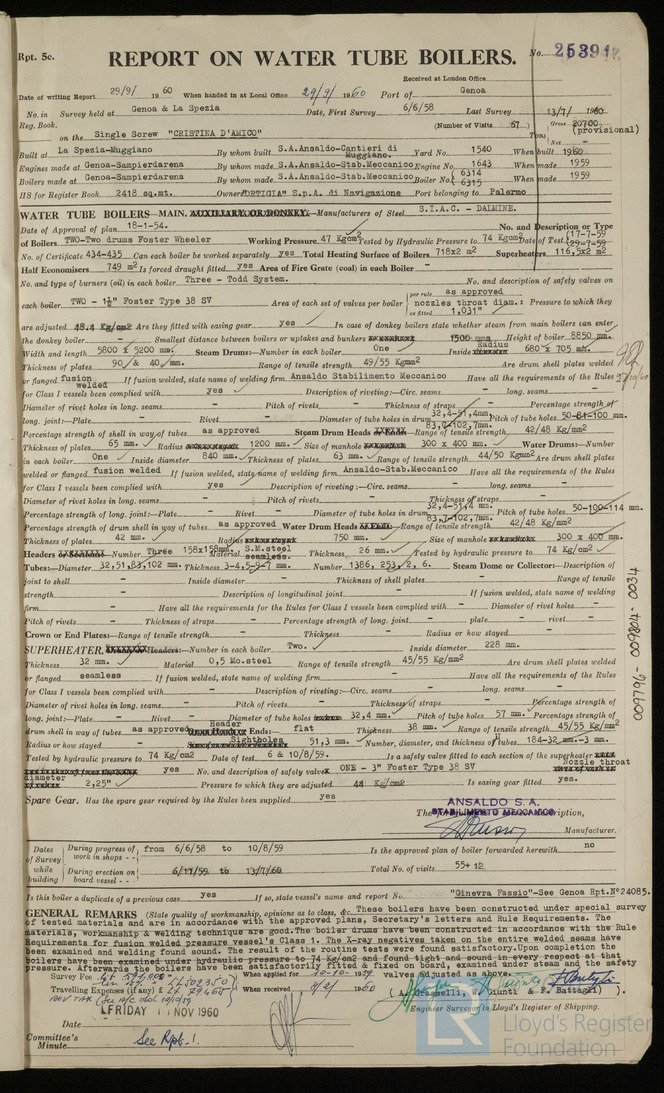 Rpt. 5c.
REPORT ON WATER TUBE BOILERS.
No. 25391
Received at London Office
Date of writing Report 29/9/ 1960 When handed in at Local Office 29/9/1960 Port of Genoa
No. in Survey held at Genoa & La Spezia Date, First Survey 6/6/58 Last Survey 13/7/ 1960
Reg. Book. (Number of Visits 67) Gross 20700 (provisional)
on the Single Screw "CRISTINA D'AMICO" Tons Net -
Built at La Spezia-Muggiano By whom built S.A.Ansaldo-Cantieri di Muggiano. Yard No. 1540 When built 1960
Engines made at Genoa-Sampierdarena By whom made S.A.Ansaldo-Stab.Meccanico Engine No. 1643 When made 1959
Boilers made at Genoa-Sampierdarena By whom made S.A.Ansaldo-Stab.Meccanico Boiler No. 6314 6315 When made 1959
HS for Register Book 2418 sq.mt. Owners "ORTIGIA" S.p.A. di Navigazione Port belonging to Palermo
WATER TUBE BOILERS—MAIN, AUXILIARY, OR DONKEY.—Manufacturers of Steel S.I.A.C. - DALMINE.
Date of Approval of plan 18-1-54. No. and Description or Type
of Boilers TWO-Two drums Foster Wheeler Working Pressure 47 Kgcm² Tested by Hydraulic Pressure to 74 Kgcm² Date of Test (17-7-59 (29-7-59
No. of Certificate 434-435 Can each boiler be worked separately yes Total Heating Surface of Boilers 718x2 m² Superheaters 116,5x2 m²
Half Economisers 749 m² Is forced draught fitted yes Area of Fire Grate (coal) in each Boiler -
No. and type of burners (oil) in each boiler Three - Todd System. No. and description of safety valves on
each boiler TWO - 1½" Foster Type 38 SV Area of each set of valves per boiler per rule as approved as fitted nozzles throat diam.: 1,031" Pressure to which they
are adjusted 48.4 Kg/cm2 Are they fitted with easing gear yes In case of donkey boilers state whether steam from main boilers can enter
the donkey boiler - Smallest distance between boilers or uptakes and bunkers 1500 mm Height of boiler 8850 mm.
Width and length 5800 x 5200 mm. Steam Drums:—Number in each boiler One Inside Radius 680 x 705 mm.
Thickness of plates 90 & 40 mm. Range of tensile strength 49/55 Kgmm2 Are drum shell plates welded
or flanged fusion welded If fusion welded, state name of welding firm Ansaldo Stabilimento Meccanico Have all the requirements of the Rules
for Class I vessels been complied with yes Description of riveting:—Circ. seams - long. seams -
Diameter of rivet holes in long. seams - Pitch of rivets - Thickness of straps - Percentage strength of
long. joint:—Plate - Rivet - Diameter of tube holes in drum 32,4-51,4mm. 83,7-102,7mm. Pitch of tube holes 50-81-100 mm.
Percentage strength of shell in way of tubes as approved Steam Drum Heads Range of tensile strength 42/48 Kg/mm2
Thickness of plates 65 mm. Radius 1200 mm. Size of manhole 300 x 400 mm. Water Drums:—Number
in each boiler One Inside diameter 840 mm. Thickness of plates 63 mm. Range of tensile strength 44/50 Kgmm2 Are drum shell plates
welded or flanged fusion welded If fusion welded, state name of welding firm Ansaldo-Stab.Meccanico Have all the requirements of the Rules
for Class I vessels been complied with yes Description of riveting:—Circ. seams - long. seams -
Diameter of rivet holes in long. seams - Pitch of rivets - Thickness of straps -
Percentage strength of long. joint:—Plate - Rivet - Diameter of tube holes in drum 32,4-51,4 mm. 83,7-102,7mm. Pitch of tube holes 50-100-114 mm.
Percentage strength of drum shell in way of tubes as approved Water Drum Heads Range of tensile strength 42/48 Kg/mm2
Thickness of plates 42 mm. Radius 750 mm. Size of manhole 300 x 400 mm.
Headers Number Three 158x158mm. Material S.M.steel seamless. Thickness 26 mm. Tested by hydraulic pressure to 74 Kg/cm2
Tubes:—Diameter 32,51,83,102 mm. Thickness 3-4,5-9-7 mm. Number 1386, 253, 2, 6. Steam Dome or Collector:—Description of
joint to shell - Inside diameter - Thickness of shell plates - Range of tensile
strength - Description of longitudinal joint - If fusion welded, state name of welding
firm - Have all the requirements for the Rules for Class I vessels been complied with - Diameter of rivet holes -
Pitch of rivets - Thickness of straps - Percentage strength of long. joint - plate - rivet -
Crown or End Plates:—Range of tensile strength - Thickness - Radius or how stayed -
SUPERHEATER. Headers:—Number in each boiler Two. Inside diameter 228 mm.
Thickness 32 mm. Material 0,5 Mo.steel Range of tensile strength 45/55 Kg/mm2 Are drum shell plates welded
or flanged seamless If fusion welded, state name of welding firm - Have all the requirements of the Rules
for Class I vessels been complied with - Description of riveting:—Circ. seams - long. seams -
Diameter of rivet holes in long. seams - Pitch of rivets - Thickness of straps - Percentage strength of
long. joint:—Plate - Rivet - Diameter of tube holes 32,4 mm. Pitch of tube holes 57 mm. Percentage strength of
drum shell in way of tubes as approved Header Ends:— flat Thickness 38 mm. Range of tensile strength 45/55 Kg/mm2
Radius or how stayed - Sightholes 51,3 mm. Number, diameter, and thickness of tubes 184-32 mm.-3 mm.
Tested by hydraulic pressure to 74 Kg/cm2 Date of test 6 & 10/8/59. Is a safety valve fitted to each section of the superheater
yes No. and description of safety valve ONE - 3" Foster Type 38 SV Nozzle throat
diameter 2,25" Pressure to which they are adjusted 44 Kg/cm2 Is easing gear fitted yes.
Spare Gear. Has the spare gear required by the Rules been supplied yes
The foregoing is a correct description,
ANSALDO S.A.
STABILIMENTO MECCANICO
Manufacturer.
Dates of Survey while building
During progress of work in shops - - from 6/6/58 to 10/8/59 Is the approved plan of boiler forwarded herewith no
During erection on board vessel - - 6/11/59 to 13/7/60 Total No. of visits 55+ 12
Is this boiler a duplicate of a previous case yes If so, state vessel's name and report No. "Ginevra Fassio"-See Genoa Rpt.N°24085.
GENERAL REMARKS (State quality of workmanship, opinions as to class, &c. These boilers have been constructed under special survey
of tested materials and are in accordance with the approved plans, Secretary's letters and Rule Requirements. The
materials, workmanship & welding technique are good.The boiler drums have been constructed in accordance with the Rule
Requirements for fusion welded pressure vessel's Class 1. The X-ray negatives taken on the entire welded seams have
been examined and welding found sound. The result of the routine tests were found satisfactory.Upon completion the
boilers have been examined under hydraulic pressure to 74 Kg/cm2 and found tight and sound in every respect at that
pressure. Afterwards the boilers have been satisfactorily fitted & fixed on board, examined under steam and the safety
valves adjusted as above.
Survey Fee When applied for 12-10-1959
Travelling Expenses (if any) When received 8/2/ 1960
(A. Grasselli, W. Giunti & F. Battagli ).
Engineer Surveyor to Lloyd's Register of Shipping.
FRIDAY 11 NOV 1960
Date
Committee's Minute See Rpt. 1.
009796-009804-0034
LR
Lloyd's Register
Foundation